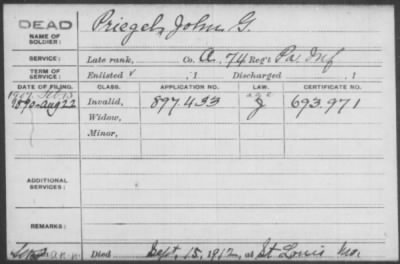 DEAD
NAME OF SOLDIER: Priegel, John G.
SERVICE: Late rank, Co. A, 74 Reg't Pa. Inf
TERM OF SERVICE: Enlisted , 1 Discharged , 1
DATE OF FILING. CLASS. APPLICATION NO. LAW. CERTIFICATE NO.
1907 Feb
1890-Aug 22 Invalid, 897.433 693.971
Widow,
Minor,
ADDITIONAL SERVICES:
REMARKS:
Died Sept. 15, 1912, at St Louis Mo.